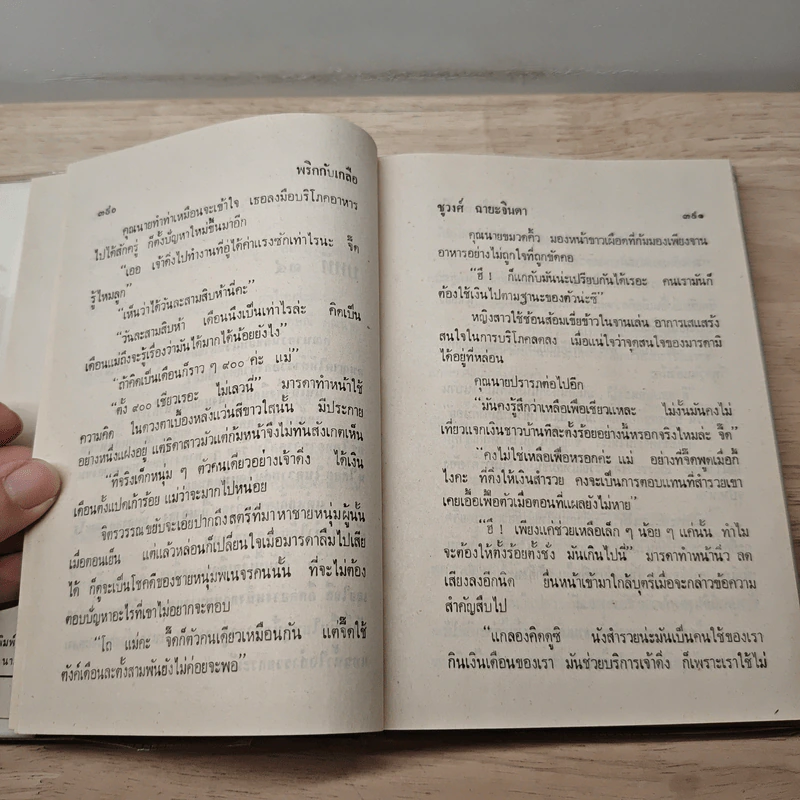 ๓๕๐
พริกกับเกลือ
คุณนายทำท่าเหมือนจะเข้าใจ เธอลงมือบริโภคอาหาร
ไปได้สักครู่ ก็ตั้งปัญหาใหม่ขึ้นมาอีก
“เออ เจ้าดิ่งไปทำงานที่อู่ได้ค่าแรงซักเท่าไรนะ จี๊ด
รู้ไหมลูก”
“เห็นว่าได้วันละสามสิบห้านี่คะ”
“วันละสามสิบห้า เดือนนึงเป็นเท่าไรล่ะ คิดเป็น
เดือนแม่ถึงจะรู้เรื่องว่ามันได้มากได้น้อยยังไง”
“ถ้าคิดเป็นเดือนก็ราว ๆ ๙๐๐ ค่ะ แม่”
“ตั้ง ๙๐๐ เชียวเรอะ ไม่เลวนี่” มารดาทำหน้าใช้
ความคิด ในดวงตาเบื้องหลังแว่นสีขาวใสนั้น มีประกาย
อย่างหนึ่งแฝงอยู่ แต่ธิดาสาวมัวแต่ก้มหน้าจึงไม่ทันสังเกตเห็น
“ที่จริงเด็กหนุ่ม ๆ ตัวคนเดียวอย่างเจ้าดิ่ง ได้เงิน
เดือนตั้งแปดเก้าร้อย แม่ว่าจะมากไปหน่อย
จิตรวรรณขยับจะเอ่ยปากถึงสตรีที่มาหาชายหนุ่มผู้นั้น
เมื่อตอนเย็น แต่แล้วหล่อนก็เปลี่ยนใจเมื่อมารดาลืมไปเสีย
ได้ ก็ดูจะเป็นโชคดีของชายหนุ่มพเนจรคนนั้น ที่จะไม่ต้อง
ตอบปัญหาอะไรที่เขาไม่อยากจะตอบ
“โถ แม่คะ จี๊ดก็ตัวคนเดียวเหมือนกัน แต่จี๊ดใช้
ตังค์เดือนละตั้งสามพันยังไม่ค่อยจะพอ”
ชูวงศ์ ฉายะจินดา
๓๕๑
คุณนายขมวดคิ้ว มองหน้าขาวเผือดที่ก้มมองเพียงจาน
อาหารอย่างไม่ถูกใจที่ถูกขัดคอ
“ฮึ ! ก็แกกับมันน่ะเปรียบกันได้เรอะ คนเรามันก็
ต้องใช้เงินไปตามฐานะของตัวน่ะซิ”
หญิงสาวใช้ช้อนส้อมเขี่ยข้าวในจานเล่น อาการเสแสร้ง
สนใจในการบริโภคลดลง เมื่อแน่ใจว่าจุดสนใจของมารดามิ
ได้อยู่ที่หล่อน
คุณนายปรารภต่อไปอีก
“มันคงรู้สึกว่าเหลือเฟือเชียวแหละ ไม่งั้นมันคงไม่
เที่ยวแจกเงินชาวบ้านทีละตั้งร้อยอย่างนี้หรอกจริงไหมล่ะ จี๊ด”
“คงไม่ใช่เหลือเฟือหรอกค่ะ แม่ อย่างที่จี๊ดพูดเมื่อกี้
ไงคะ ที่ดิ่งให้เงินสำรวย คงจะเป็นการตอบแทนที่สำรวยเขา
เคยเอื้อเฟื้อตัวเมื่อตอนที่แผลยังไม่หาย”
“ฮึ ! เพียงแค่ช่วยเหลือเล็ก ๆ น้อย ๆ แค่นั้น ทำไม
จะต้องให้ตั้งร้อยตั้งชั่ง มันเกินไปนี่” มารดาทำหน้านิ่ว ลด
เสียงลงอีกนิด ยื่นหน้าเข้ามาใกล้บุตรีเมื่อจะกล่าวข้อความ
สำคัญสืบไป
“แกลองคิดดูซิ นังสำรวยน่ะมันเป็นคนใช้ของเรา
กินเงินเดือนของเรา มันช่วยบริการเจ้าดิ่ง ก็เพราะเราใช้ไม่